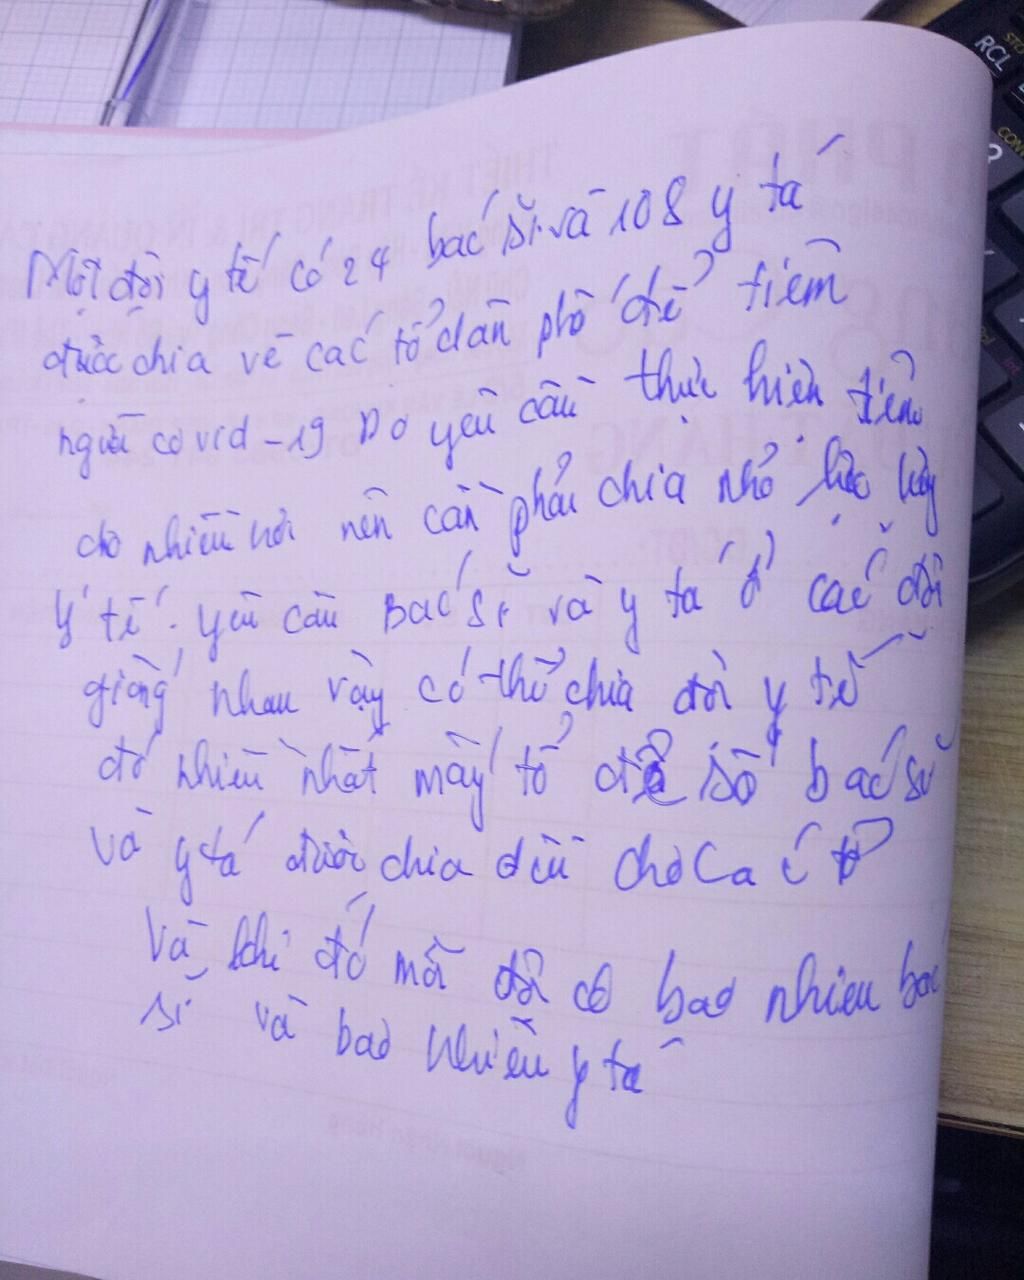 Một đội y tế có 24 bác sĩ và 108 y tá
được chia về các tổ dân phố để tiêm
ngừa covid-19 Do yêu cầu thực hiện tiêm
cho nhiều nơi nên cần phải chia nhỏ
y tế. yêu cầu Bác sĩ và y tá ở các đội
giống nhau vậy có thể chia đội y tế
đó nhiều nhất mấy tổ để số bác sĩ
và y tá được chia đều cho các tổ
Và khi đó mỗi đội có bao nhiêu bác
sĩ và bao nhiêu y tá
RCL